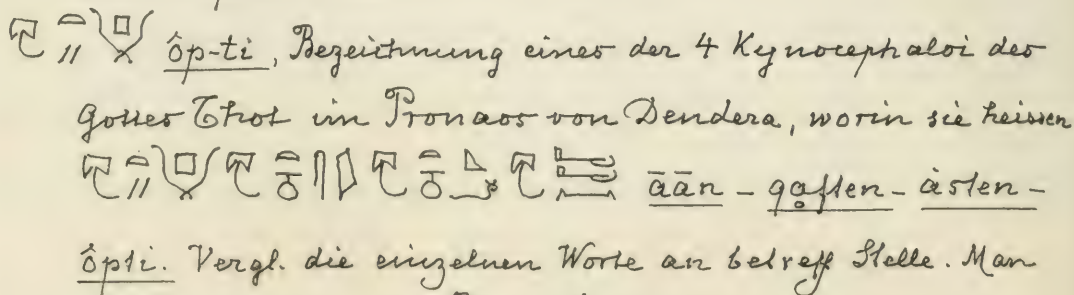 ôp-ti, Bezeichnung eines der 4 Kynocephaloi des
Gottes Thot im Pronaos von Dendera, worin sie heissen
āān - qaften - àsten -
ôpti. Vergl. die einzelnen Worte an betreff Stelle. Man